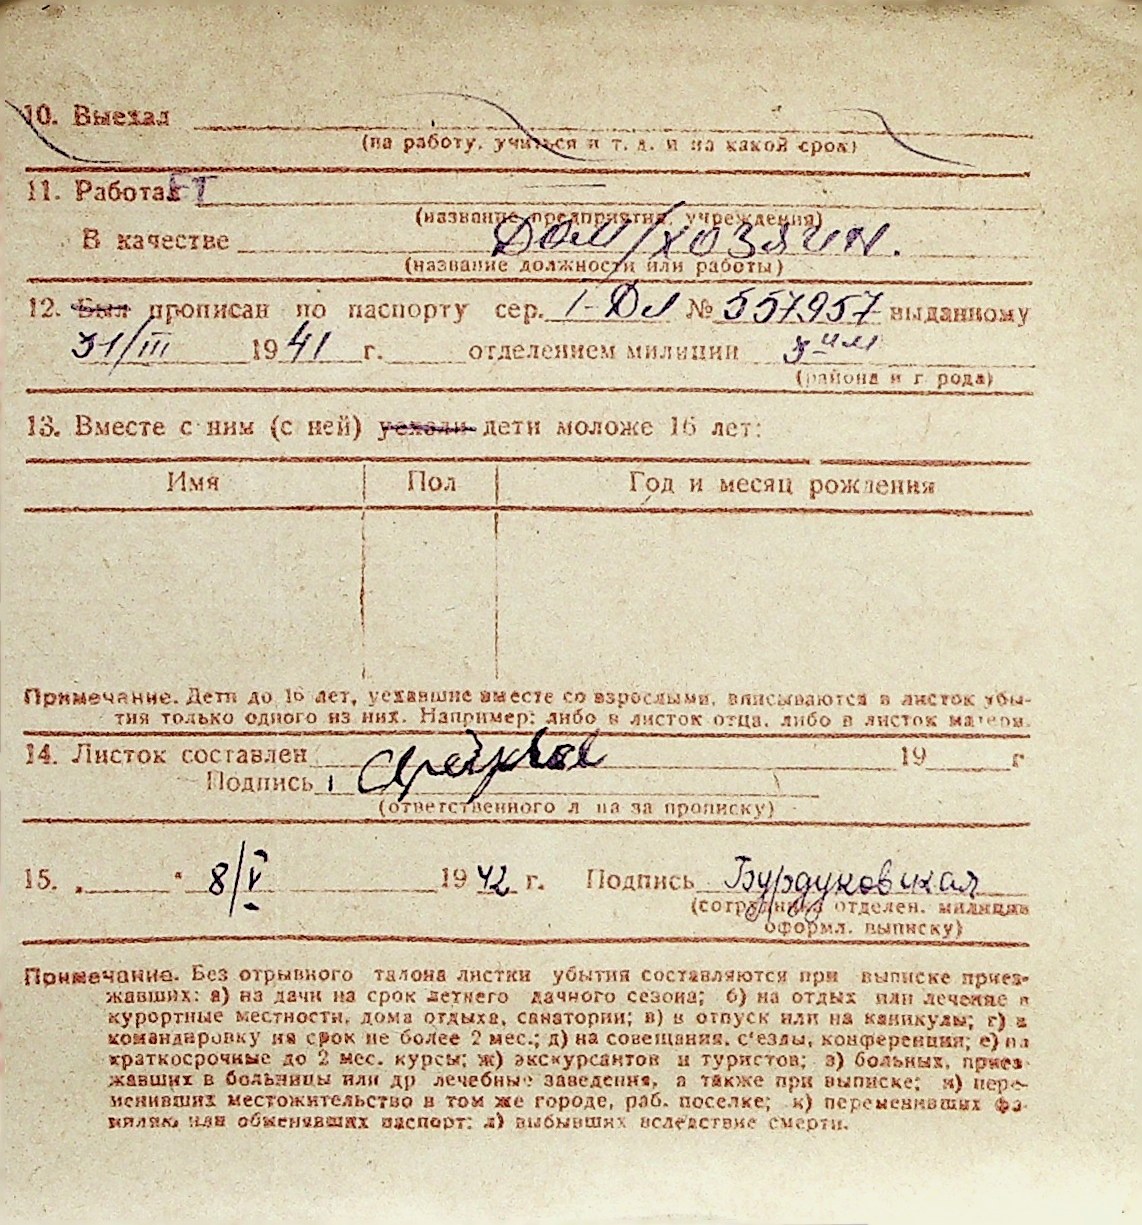 10. Выехал
(на работу, учиться и т. д. и на какой срок)
11. РаботаЕТ
(название предприятия, учреждения)
В качестве Дом/хозяин.
(название должности или работы)
12. Был прописан по паспорту сер. 1-Дл № 557957 выданному
31/III 1941 г. отделением милиции
(района и города)
13. Вместе с ним (с ней) уехали дети моложе 16 лет:
Имя Пол Год и месяц рождения
Примечание. Дети до 16 лет, уехавшие вместе со взрослыми, вписываются в листок убы-
тия только одного из них. Например: либо в листок отца, либо в листок матери.
14. Листок составлен 19 г
Подпись
(ответственного лица за прописку)
15. „ " 8/V 1942 г. Подпись Бурдуковская
(сотрудника отделен. милиции
оформл. выписку)
Примечание. Без отрывного талона листки убытия составляются при выписке приез-
жавших: а) на дачи на срок летнего дачного сезона; б) на отдых или лечение в
курортные местности, дома отдыха, санатории; в) в отпуск или на каникулы; г) в
командировку на срок не более 2 мес.; д) на совещания, с'езды, конференции; е) на
краткосрочные до 2 мес. курсы; ж) экскурсантов и туристов; з) больных, приез-
жавших в больницы или др лечебные заведения, а также при выписке; и) пере-
менивших местожительство в том же городе, раб. поселке; к) переменивших фа-
милию или обменявших паспорт; л) выбывших вследствие смерти.